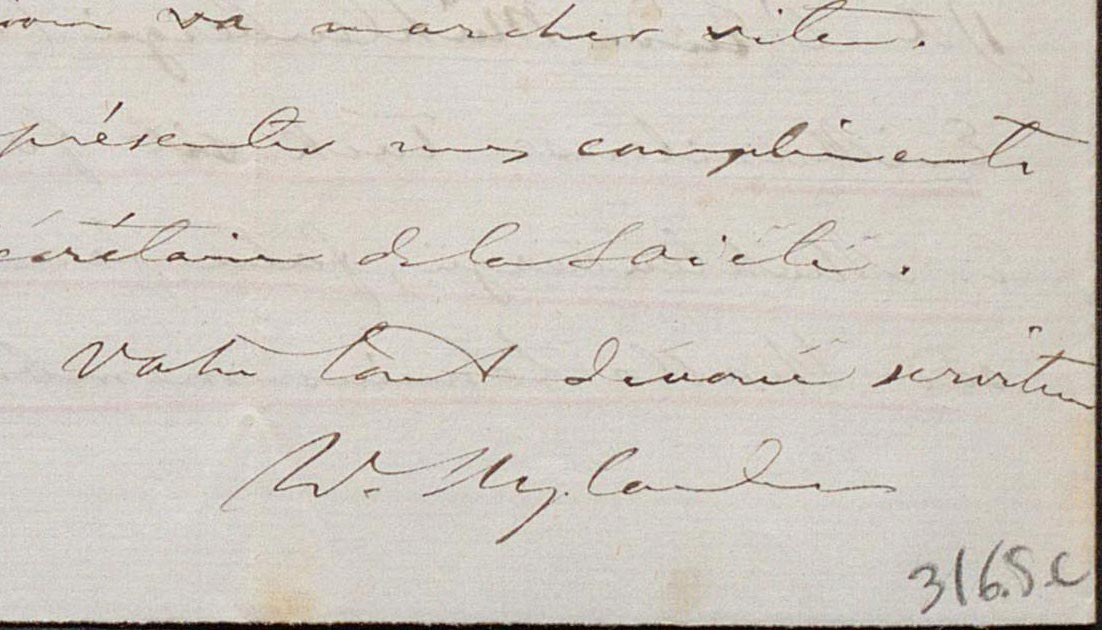 va marcher vite.
présenter mes compliments
secrétaire de la Société.
Votre tout dévoué serviteur
W. Nylander
316.S.C